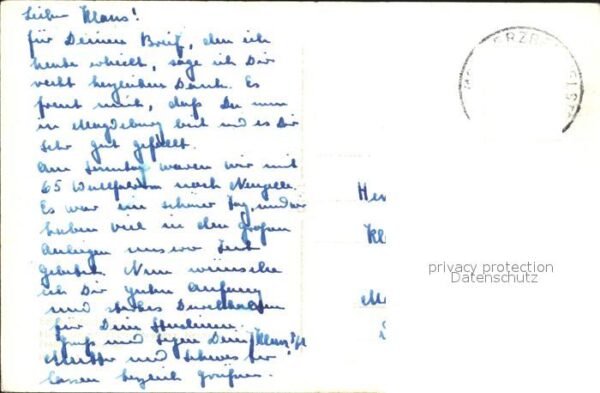 Lieber Klaus!
für Deinen Brief, den ich
heute erhielt, sage ich Dir
recht herzlichen Dank. Es
freut mich, daß Du nun
in Magdeburg bist und es Dir
sehr gut gefällt.
Am Sonntag waren wir mit
65 Wallfahrern nach Neuzelle.
Es war ein schöner Tag, und wir
haben viel in den großen
Anliegen unserer Zeit
gebetet. Nun wünsche
ich Dir guten Anfang
und starkes Durchhalten
für Dein Studium.
Gruß und Segen Dein
Mutter und Schwester
lassen herzlich grüßen.
Her
Kla
Ma
privacy protection
Datenschutz